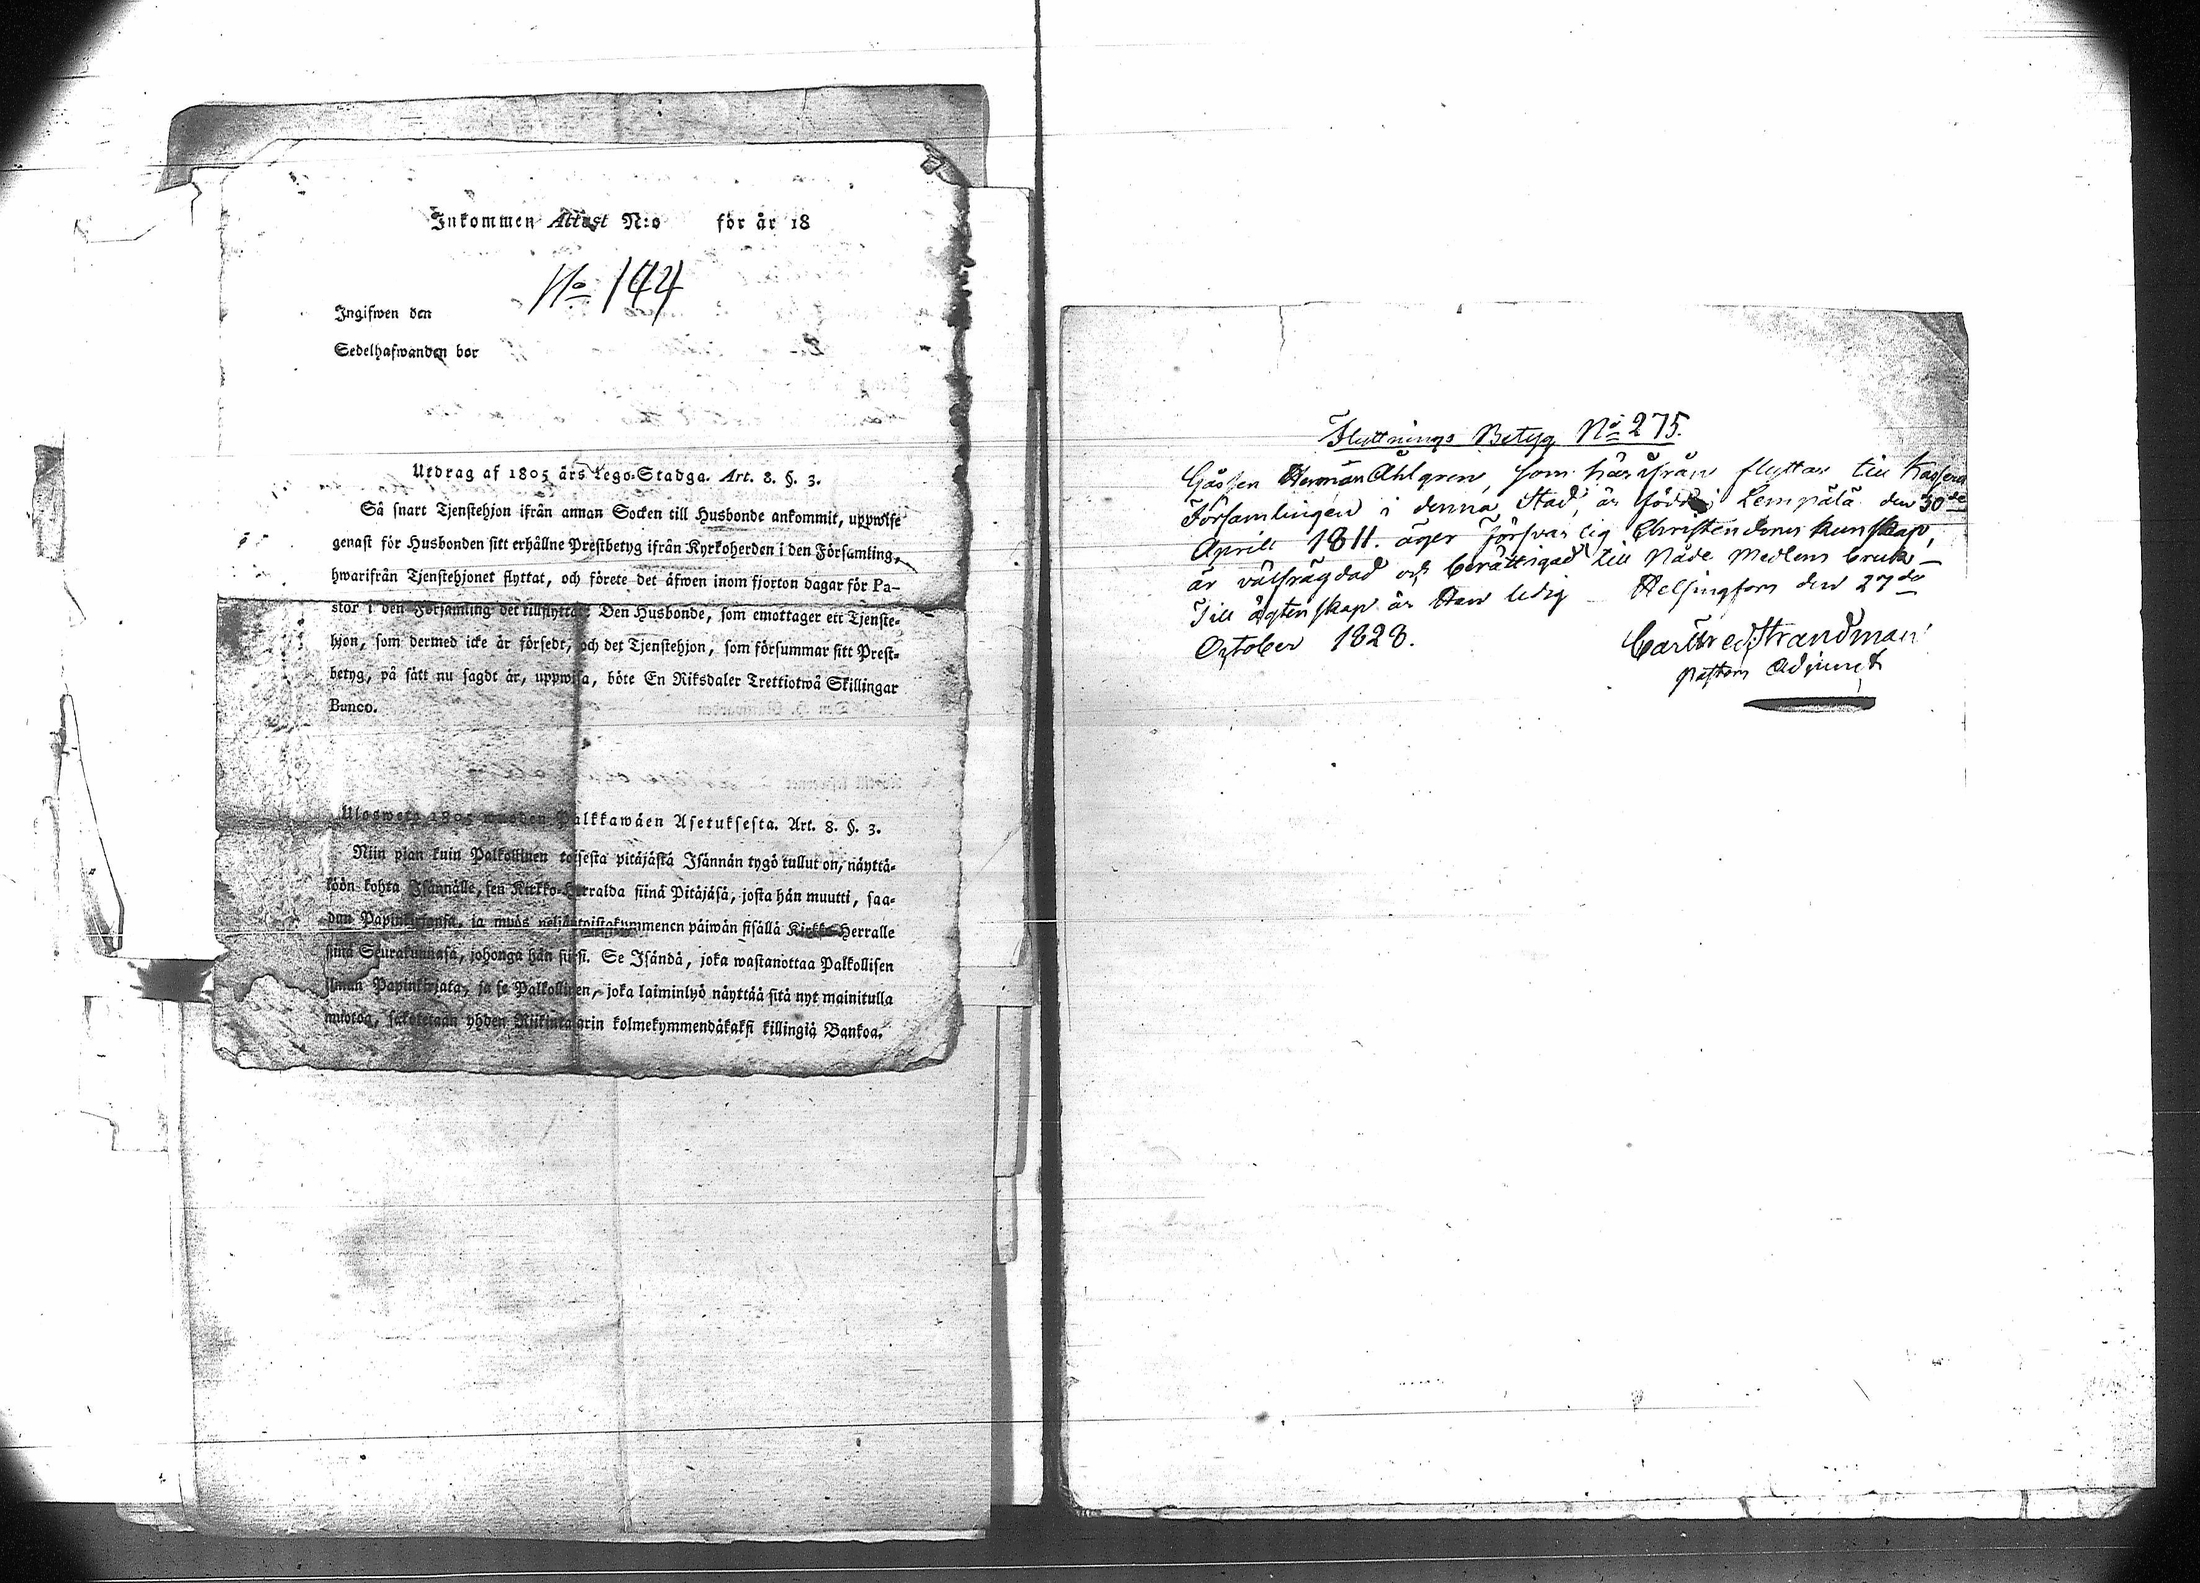 Inkommen Attest N:o för år 18
No 144
Ingifwen den
Sedelhafwanden bor
Utdrag af 1805 års Lego-Stadga. Art. 8. §. 3.
Så snart Tjenstehjon ifrån annan Socken till Husbonde ankommit, uppwise
genast för Husbonden sitt erhållne Prestbetyg ifrån Kyrkoherden i den Församling,
hwarifrån Tjenstehjonet flyttat, och förete det äfwen inom fjorton dagar för Pa-
stor i den Församling det tillflyttat. Den Husbonde, som emottager ett Tjenste-
hjon, som dermed icke är försedt, och det Tjenstehjon, som försummar sitt Prest-
betyg, på sätt nu sagdt är, uppwisa, böte En Riksdaler Trettiotwå Skillingar
Banco.
Ulosweto 1805 wuoden Palkkawäen Asetuksesta. Art. 8. §. 3.
Niin pian kuin Palkollinen toisesta pitäjästä Isännän tygö tullut on, näyttä-
köön kohta Isännälle, sen Kirkko-Herralda siinä Pitäjäsä, josta hän muutti, saa-
dun Papinkirjansa, ja myös neljäntoistakummenen päiwän sisällä Kirkko-Herralle
siinä Seurakunnasa, johonga hän siirsi. Se Isändä, joka wastanottaa Palkollisen
ilman Papinkirjata, ja se Palkollinen, joka laiminlyö näyttää sitä nyt mainitulla
muotoa, sakotetaan yhden Riikintalarin kolmekymmendäkaksi killingiä Bankoa.
Flyttnings Betyg No 275.
Gåssen Herman Ahlgren, som härifrån flyttar till
Församlingen i denna Stad, är född i Lempälä den 30de
Aprill 1811. äger försvarlig Christendoms kunskap,
är välfrägdad och berättigad till Nåde Medlens bruk –
Till ägtenskap är Han ledig Helsingfors den 27de
October 1828.
Carl Fred Strandman
Pastors Adjunct